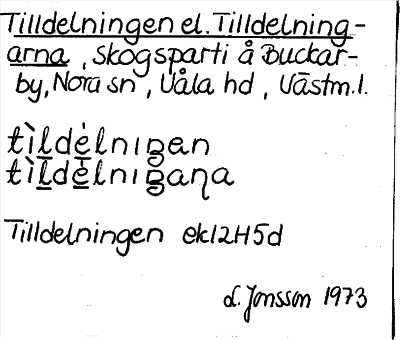 Tilldelningen el. Tilldelning-
arna, Skogsparti å Buckar-
by, Nora sn, Våla hd, Västm.l.
tìldélnıŋen
tìldélnıŋaɳa
Tilldelningen ek12H5d
d. Jonsson 1973